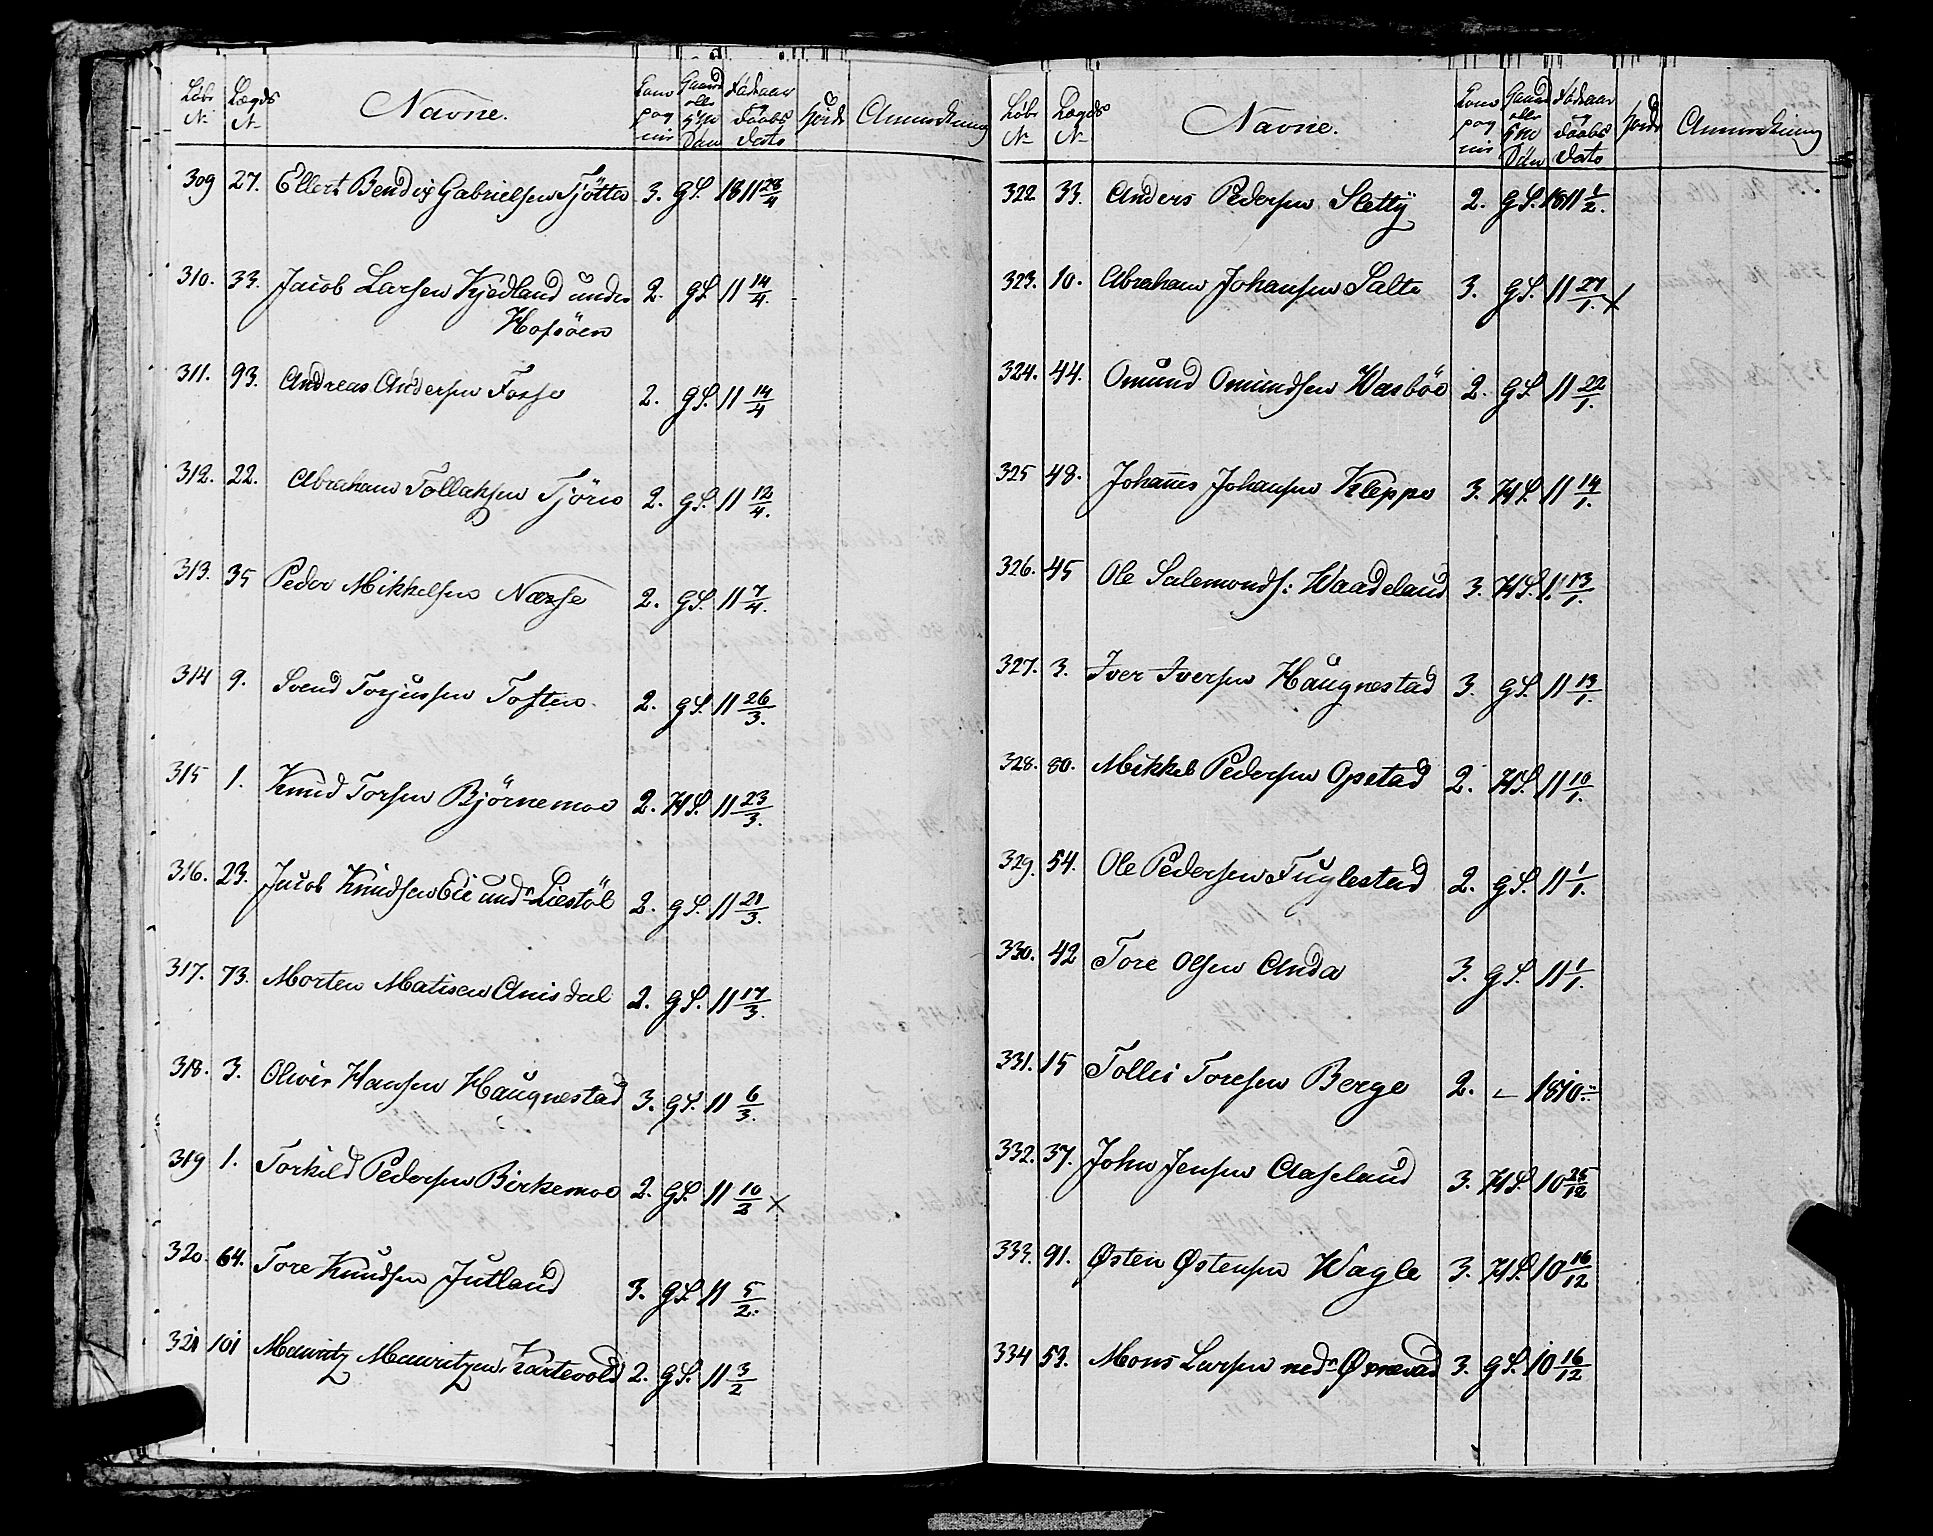 Løbe N. Lægds N. Navne. Com pag nie Gaard eller Hus Søn Fødsaar og Daabs Dato Anmerkning
309 27. Ellert Bendix Gabrielsen Tjötte 3. G S. 1811 28/4
310. 33. Jacob Larsen Kjedland under 2. G S. 11 14/4.
Hofsöen
311. 93. Andreas Andersen Fosse 2. G S. 11 14/4
312. 22. Abraham Tollaksen Tjörn 2. G S. 11 12/4.
313. 35 Peder Mikkelsen Næsse 2. G S. 11 7/4.
314 9. Svend Torjussen Toften. 2. G S. 11 26/3.
315 1. Knud Torsen Björnemoe 2. H S. 11 23/3.
316. 23. Jacob Knudsen Eie undr Liestöl 2. G S. 11 21/3.
317. 73. Morten Matisen Anisdal 2. G S. 11 17/3.
318. 3. Oliver Hansen Haugnestad 3. G S. 11 6/3.
319 1. Torkild Pedersen Birkemoe 2. G S. 11 10/2 x
320. 64. Tore Knudsen Jutland 3. G S. 11 5/2.
321 101 Mauritz Mauritzen Kartevold 2. G S. 11 3/2
Løbe N. Lægds N. Navne. Com pag nie Gaard eller Hus Søn Fødsaar og Daabs Dato Anmerkning
322 33. Anders Pedersen Sletty 2. G S. 1811 1/2.
323. 10. Abraham Johansen Salte 3. G S. 11 27/1. x
324. 44. Omund Omundsen Wasböe 2. G S. 11 22/1.
325 48. Johannes Johansen Kleppe 3. H S. 11 14/1.
326. 45 Ole Salemonds: Waadeland 3. H S. 11 13/1.
327. 3. Iver Iversen Haugnestad 3. G S. 11 13/1.
328. 80. Mikkel Pedersen Opstad 2. H S. 11 10/1.
329. 54. Ole Pedersen Fuglestad 2. G S. 11 1/1.
330. 42 Tore Olsen Anda 3. G S. 11 1/1.
331. 15 Tollei Toresen Berge 2. – 1810
332. 37. John Jensen Aaseland 3. H S. 10 25/12
333. 91. Østen Østensen Wagle 3. H S. 10 16/12
334 53. Mons Larsen nedr Ørnevad 3. G S. 10 16/12